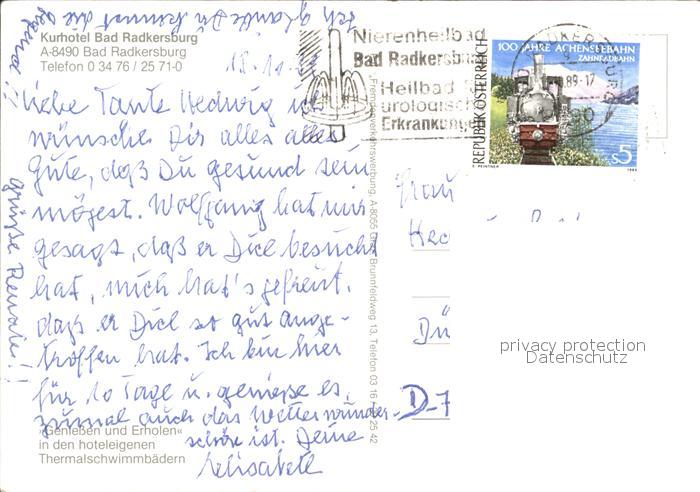 Kurhotel Bad Radkersburg
A-8490 Bad Radkersburg
Telefon 0 34 76 / 25 71-0
18.10.89
Liebe Tante Hedwig ich
wünsche Dir alles alles
Gute, daß Du gesund sein
mögest. Wolfgang hat mir
gesagt, daß er Dich besucht
hat, mich hat's gefreut,
daß er Dich so gut ange-
troffen hat. Ich bin hier
für 10 Tage u. genieße es,
zumal auch das Wetter wunder-
schön ist. Deine
Elisabeth
Ich glaube Du kennst die
Gegend!!
Grüße Renate!!
»Genießen und Erholen«
in den hoteleigenen
Thermalschwimmbädern
Fremdenverkehrswerbung, A-8055 Graz, Brunnfeldweg 13, Telefon 03 16 / 25 42
Nierenheilbad
Bad Radkersburg
Heilbad für
urologische
Erkrankungen
REPUBLIK ÖSTERREICH
100 JAHRE ACHENSEEBAHN
ZAHNRADBAHN
S 5
89-17
Frau
D-7
privacy protection
Datenschutz